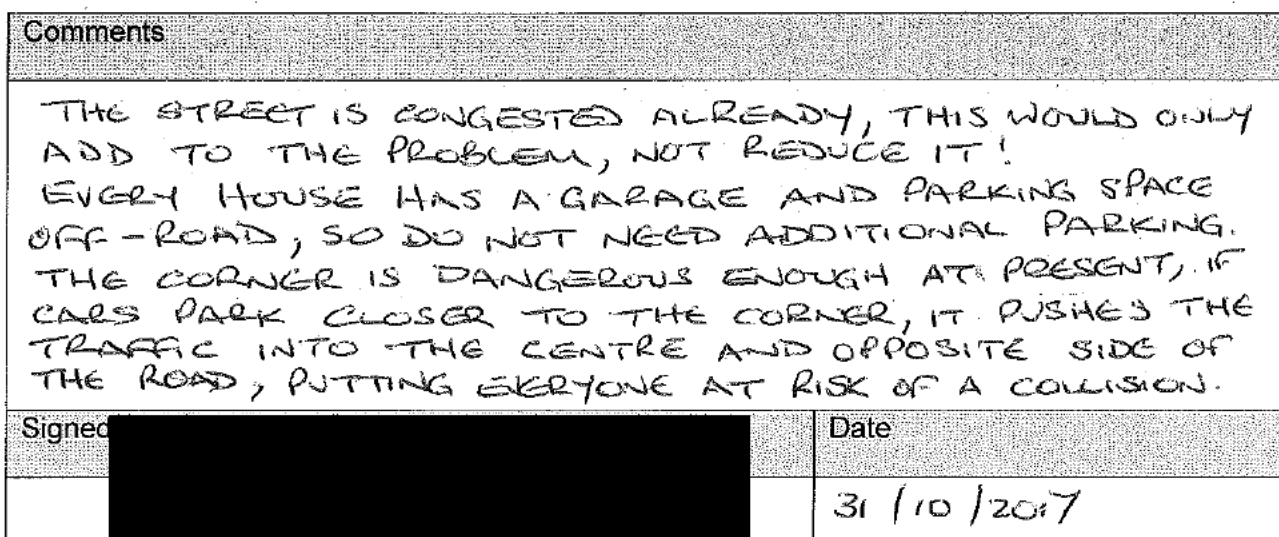 Comments
THE STREET IS CONGESTED ALREADY, THIS WOULD ONLY
ADD TO THE PROBLEM, NOT REDUCE IT!
EVERY HOUSE HAS A GARAGE AND PARKING SPACE
OFF-ROAD, SO DO NOT NEED ADDITIONAL PARKING.
THE CORNER IS DANGEROUS ENOUGH AT PRESENT, IF
CARS PARK CLOSER TO THE CORNER, IT PUSHES THE
TRAFFIC INTO THE CENTRE AND OPPOSITE SIDE OF
THE ROAD, PUTTING EVERYONE AT RISK OF A COLLISION.
Signed Date
31/10/2017